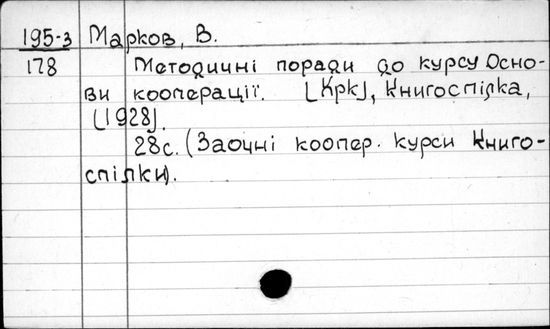 195-з Марков, В.
178 Методичні поради до курсу Осно-
ви кооперації. [Хрк], Книгоспілка,
[1928].
28с. (Заочні коопер. курси Книго-
спілки).